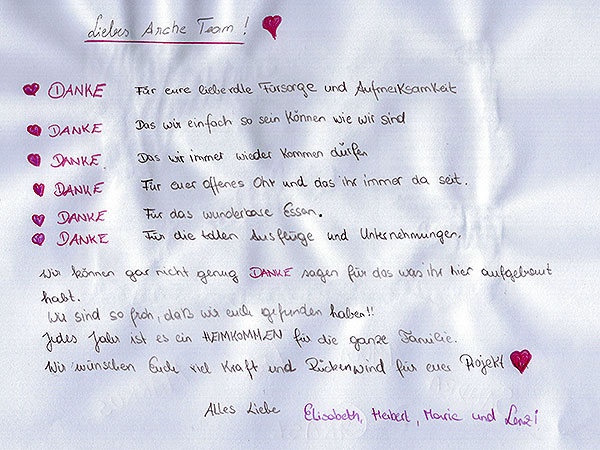 Liebes Arche Team!
DANKE Für eure liebevolle Fürsorge und Aufmerksamkeit
DANKE Das wir einfach so sein können wie wir sind
DANKE Das wir immer wieder kommen dürfen
DANKE Für euer offenes Ohr und das ihr immer da seit.
DANKE Für das wunderbare Essen.
DANKE Für die tollen Ausflüge und Unternehmungen.
Wir können gar nicht genug DANKE sagen für das was ihr hier aufgebaut
habt.
Wir sind so froh, daß wir euch gefunden haben!!
Jedes Jahr ist es ein HEIMKOMMEN für die ganze Familie.
Wir wünschen Euch viel Kraft und Rückenwind für euer Projekt
Alles Liebe Elisabeth, Herbert, Marie und Lenzi